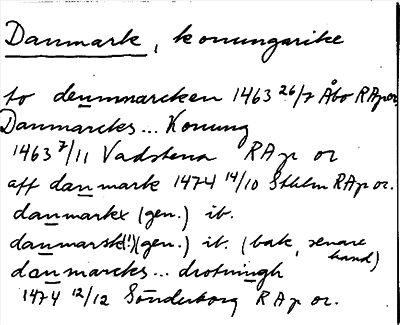 Danmark, konungarike
to denmmarcken 1463 26/7 Åbo RAp or.
Danmarcks... Konung
1463 7/11 Vadstena RAp or
aff danmark 1474 14/10 Sthlm RAp or.
danmarkx (gen.) ib.
danmarsk(!)(gen.) ib. (bak, senare hand)
danmarcks... drotningh
1474 12/12 Sönderborg RAp or.